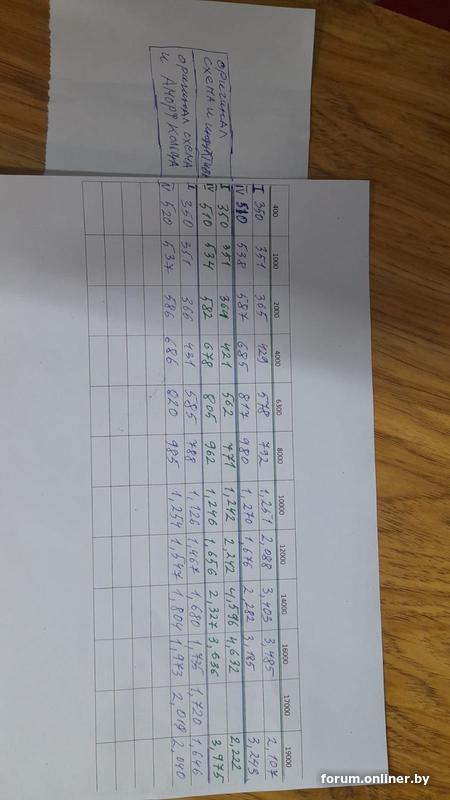 400 1000 2000 4000 6300 8000 10000 12000 14000 16000 17000 19000
I 350 351 365 429 578 792 1,261 2,088 3,403 3,485 2,107
IV 510 538 587 685 817 980 1,270 1,676 2,282 3,185 3,293
I 350 351 364 421 562 771 1,242 2,242 4,596 4,632 2,222
IV 510 534 582 678 805 962 1,246 1,656 2,327 3,636 3,975
I 350 351 366 431 585 788 1,126 1,467 1,680 1,720 1,646
IV 520 537 586 686 820 985 1,254 1,547 1,804 1,973 2,019 2,040
оригинал
схема и
оригинал схема
и Аморф кольца
forum.onliner.by